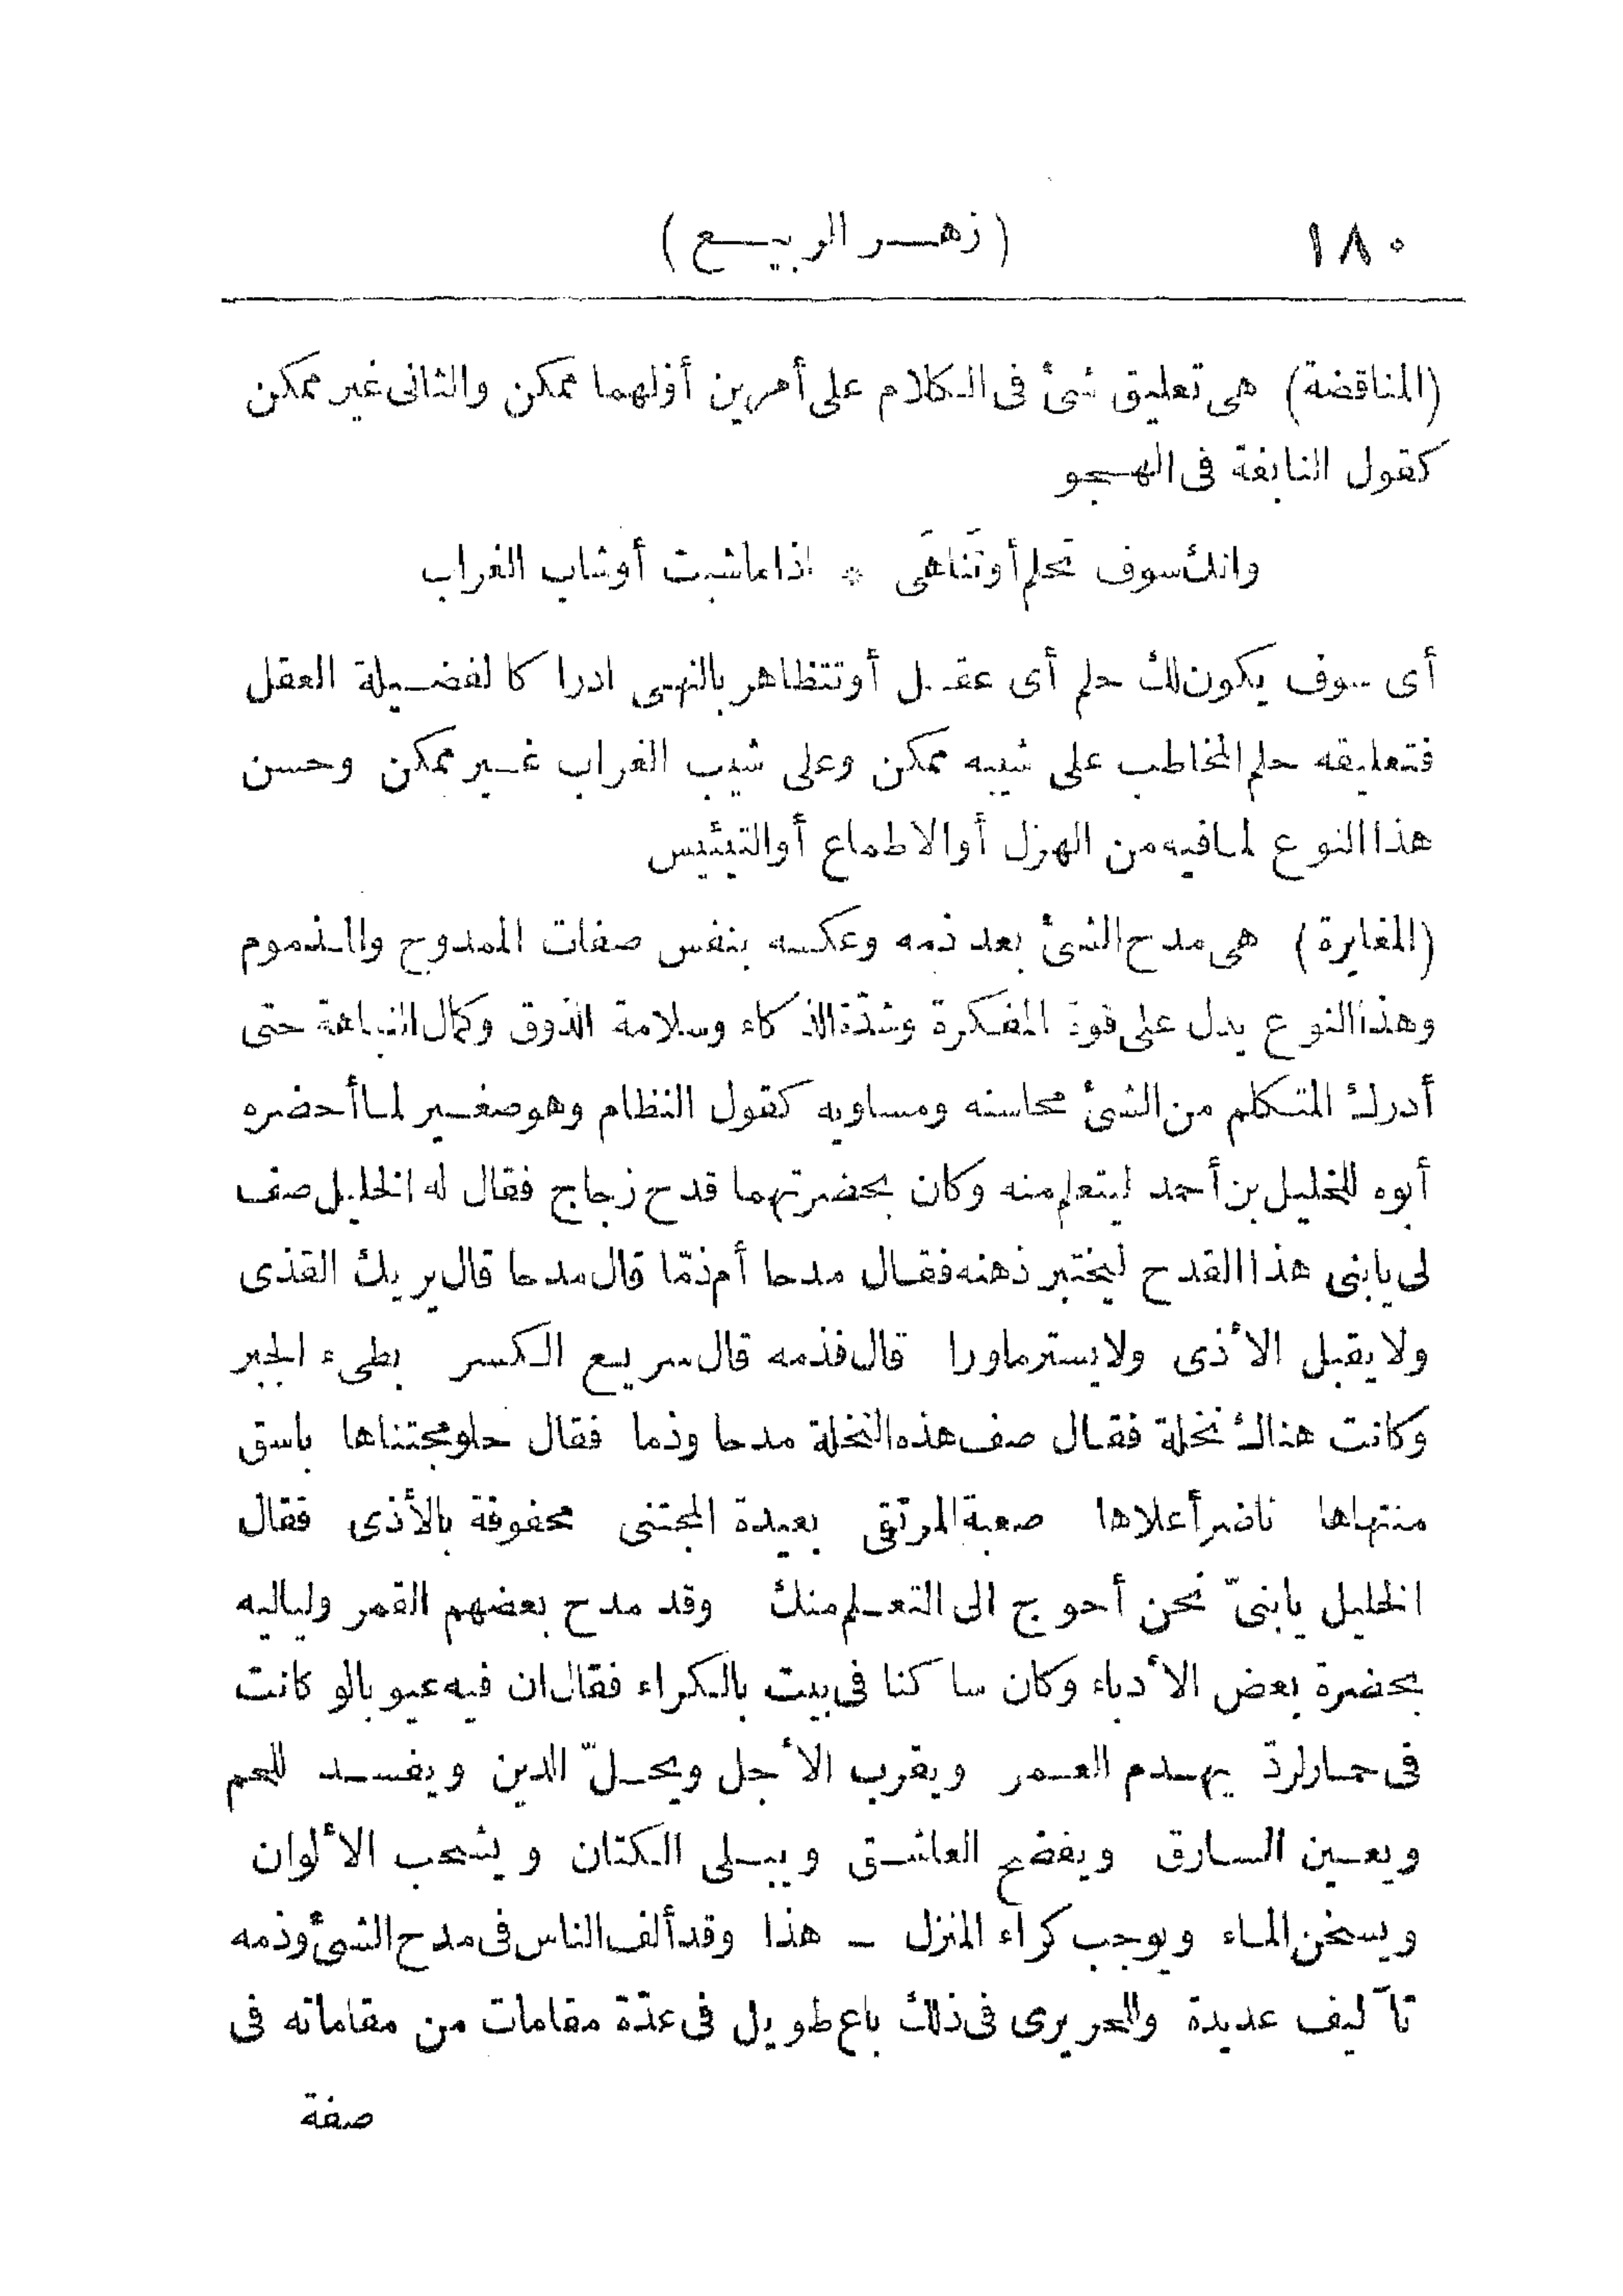 ١٨٠ (زهر الربيع)
(المناقضة) هى تعليق شئ فى الكلام على أمرين أولهما ممكن والثانى غير ممكن
كقول النابغة فى الهجو
وانك سوف تحلم أو تَناهَى * اذا ما شبت أو شاب الغراب
أى سوف يكون لك حلم أى عقل أو تتظاهر بالنهى ادرا كا لفضيلة العقل
فتعليقه حلم المخاطب على شيبه ممكن وعلى شيب الغراب غير ممكن وحسن
هذا النوع لما فيه من الهزل أو الاطماع أو التيئيس
(المغايرة) هى مدح الشئ بعد ذمه وعكسه بنفس صفات الممدوح والمذموم
وهذا النوع يدل على قوة المفكرة وشدّة الذكاء وسلامة الذوق وكمال النباهة حتى
أدرك المتكلم من الشئ محاسنه ومساويه كقول النظام وهو صغير لما أحضره
أبوه للخليل بن أحمد ليتعلم منه وكان بحضرتهما قدح زجاج فقال له الخليل صف
لى يابنى هذا القدح ليختبر ذهنه فقال مدحا أم ذمّا قال مدحا قال يريك القذى
ولا يقبل الأذى ولا يستر ماورا قال فذمه قال سريع الكسر بطىء الجبر
وكانت هناك نخلة فقال صف هذه النخلة مدحا وذما فقال حلو مجتناها باسق
منتهاها ناضر أعلاها صعبة المرتقى بعيدة المجتنى محفوفة بالأذى فقال
الخليل يابنىّ نحن أحوج الى التعلم منك وقد مدح بعضهم القمر ولياليه
بحضرة بعض الأدباء وكان سا كنا فى بيت بالكراء فقال ان فيه عيوبا لو كانت
فى حمار لردّ يهدم العمر ويقرب الأجل ويحلّ الدين ويفسد للحم
ويعين السارق ويفضح العاشق ويبلى الكتان ويشحب الألوان
ويسخن الماء ويوجب كراء المنزل ـ هذا وقد ألف الناس فى مدح الشئ وذمه
تآليف عديدة وللحريرى فى ذلك باع طويل فى عدّة مقامات من مقاماته فى
صفة